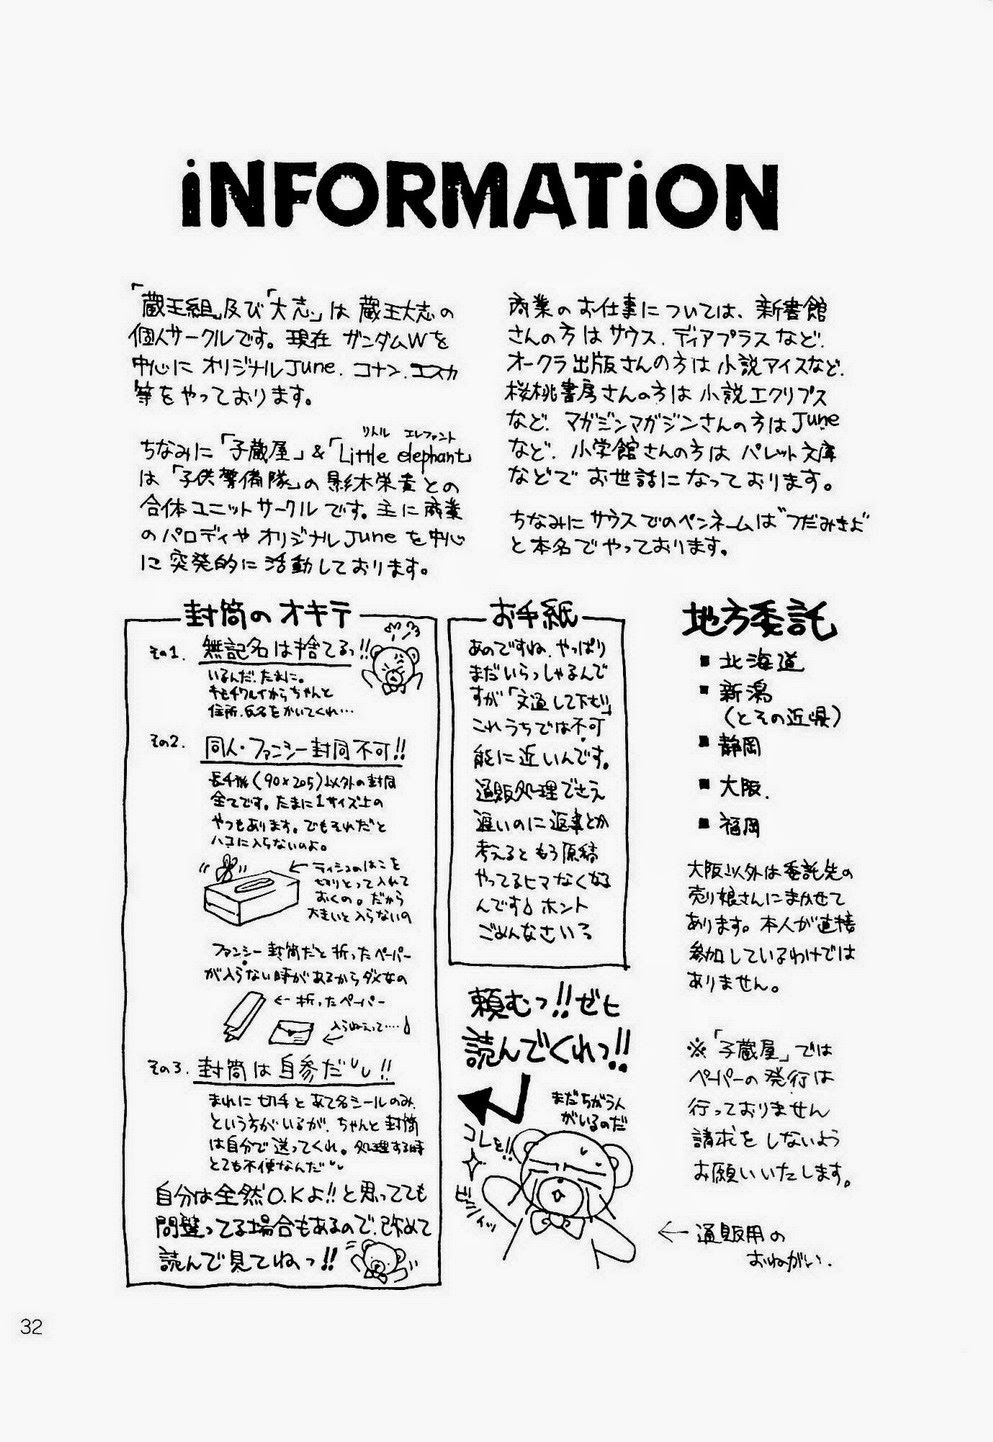 iNFORMATiON
「蔵王組」及び「大志」は 蔵王大志の
個人サークルです。現在 ガンダムWを
中心に オリジナルJune. コナン. エスカ
等をやっております。
リトル エレファント
ちなみに「子蔵屋」&「Little elephant」
は「子供警備隊」の 影木栄貴との
合体ユニットサークルです。主に商業
のパロディや オリジナルJuneを中心
に突発的に活動しております。
商業のお仕事については、新書館
さんの方はサウス. ディアプラスなど.
オークラ出版さんの方は小説アイスなど.
桜桃書房さんの方は小説エクリプス
など. マガジンマガジンさんの方はJune
など. 小学館さんの方はパレット文庫
などで お世話になっております。
ちなみにサウスでのペンネームは“つだみきよ”
と本名でやっております。
封筒のオキテ
その1. 無記名は捨てるっ!!
いるんだ.たまに。
キモチワルイからちゃんと
住所.氏名をかいてくれ…
その2. 同人・ファンシー封筒不可!!
長4版(90×205)以外の封筒
全てです。たまに1サイズ上の
やつもあります。でもそれだと
ハコに入らないのよ。
←ティシュのはこを
切りとって入れて
おくの。だから
大きいと入らないの
ファンシー封筒だと折ったペーパー
が入らない時があるからダメなの
←折ったペーパー
入らねえって……
その3. 封筒は自参だ!!
まれに切手とあて名シールのみ.
という方がいるが、ちゃんと封筒
は自分で送ってくれ。処理する時
とても不便なんだ
自分は全然O.Kよ!!と思ってても
間違ってる場合もあるので、改めて
読んで見てねっ!!
お手紙
あのですね、やっぱり
まだいらっしゃるんで
すが「文通して下さい」
これうちでは不可
能に近いんです。
通販処理でさえ
遅いのに返事とか
考えるともう原稿
やってるヒマなくなる
んです ホント
ごめんなさいる
頼むっ!!ゼヒ
読んでくれっ!!
まだちがう人
がいるのだ
コレを!!
地方委託
■北海道
■新潟
(とその近県)
■静岡
■大阪.
■福岡
大阪以外は委託先の
売り娘さんにまかせて
あります。本人が直接
参加しているわけでは
ありません。
※「子蔵屋」では
ペーパーの発行は
行っておりません
請求をしないよう
お願いいたします。
←通販用の
おねがい.
32